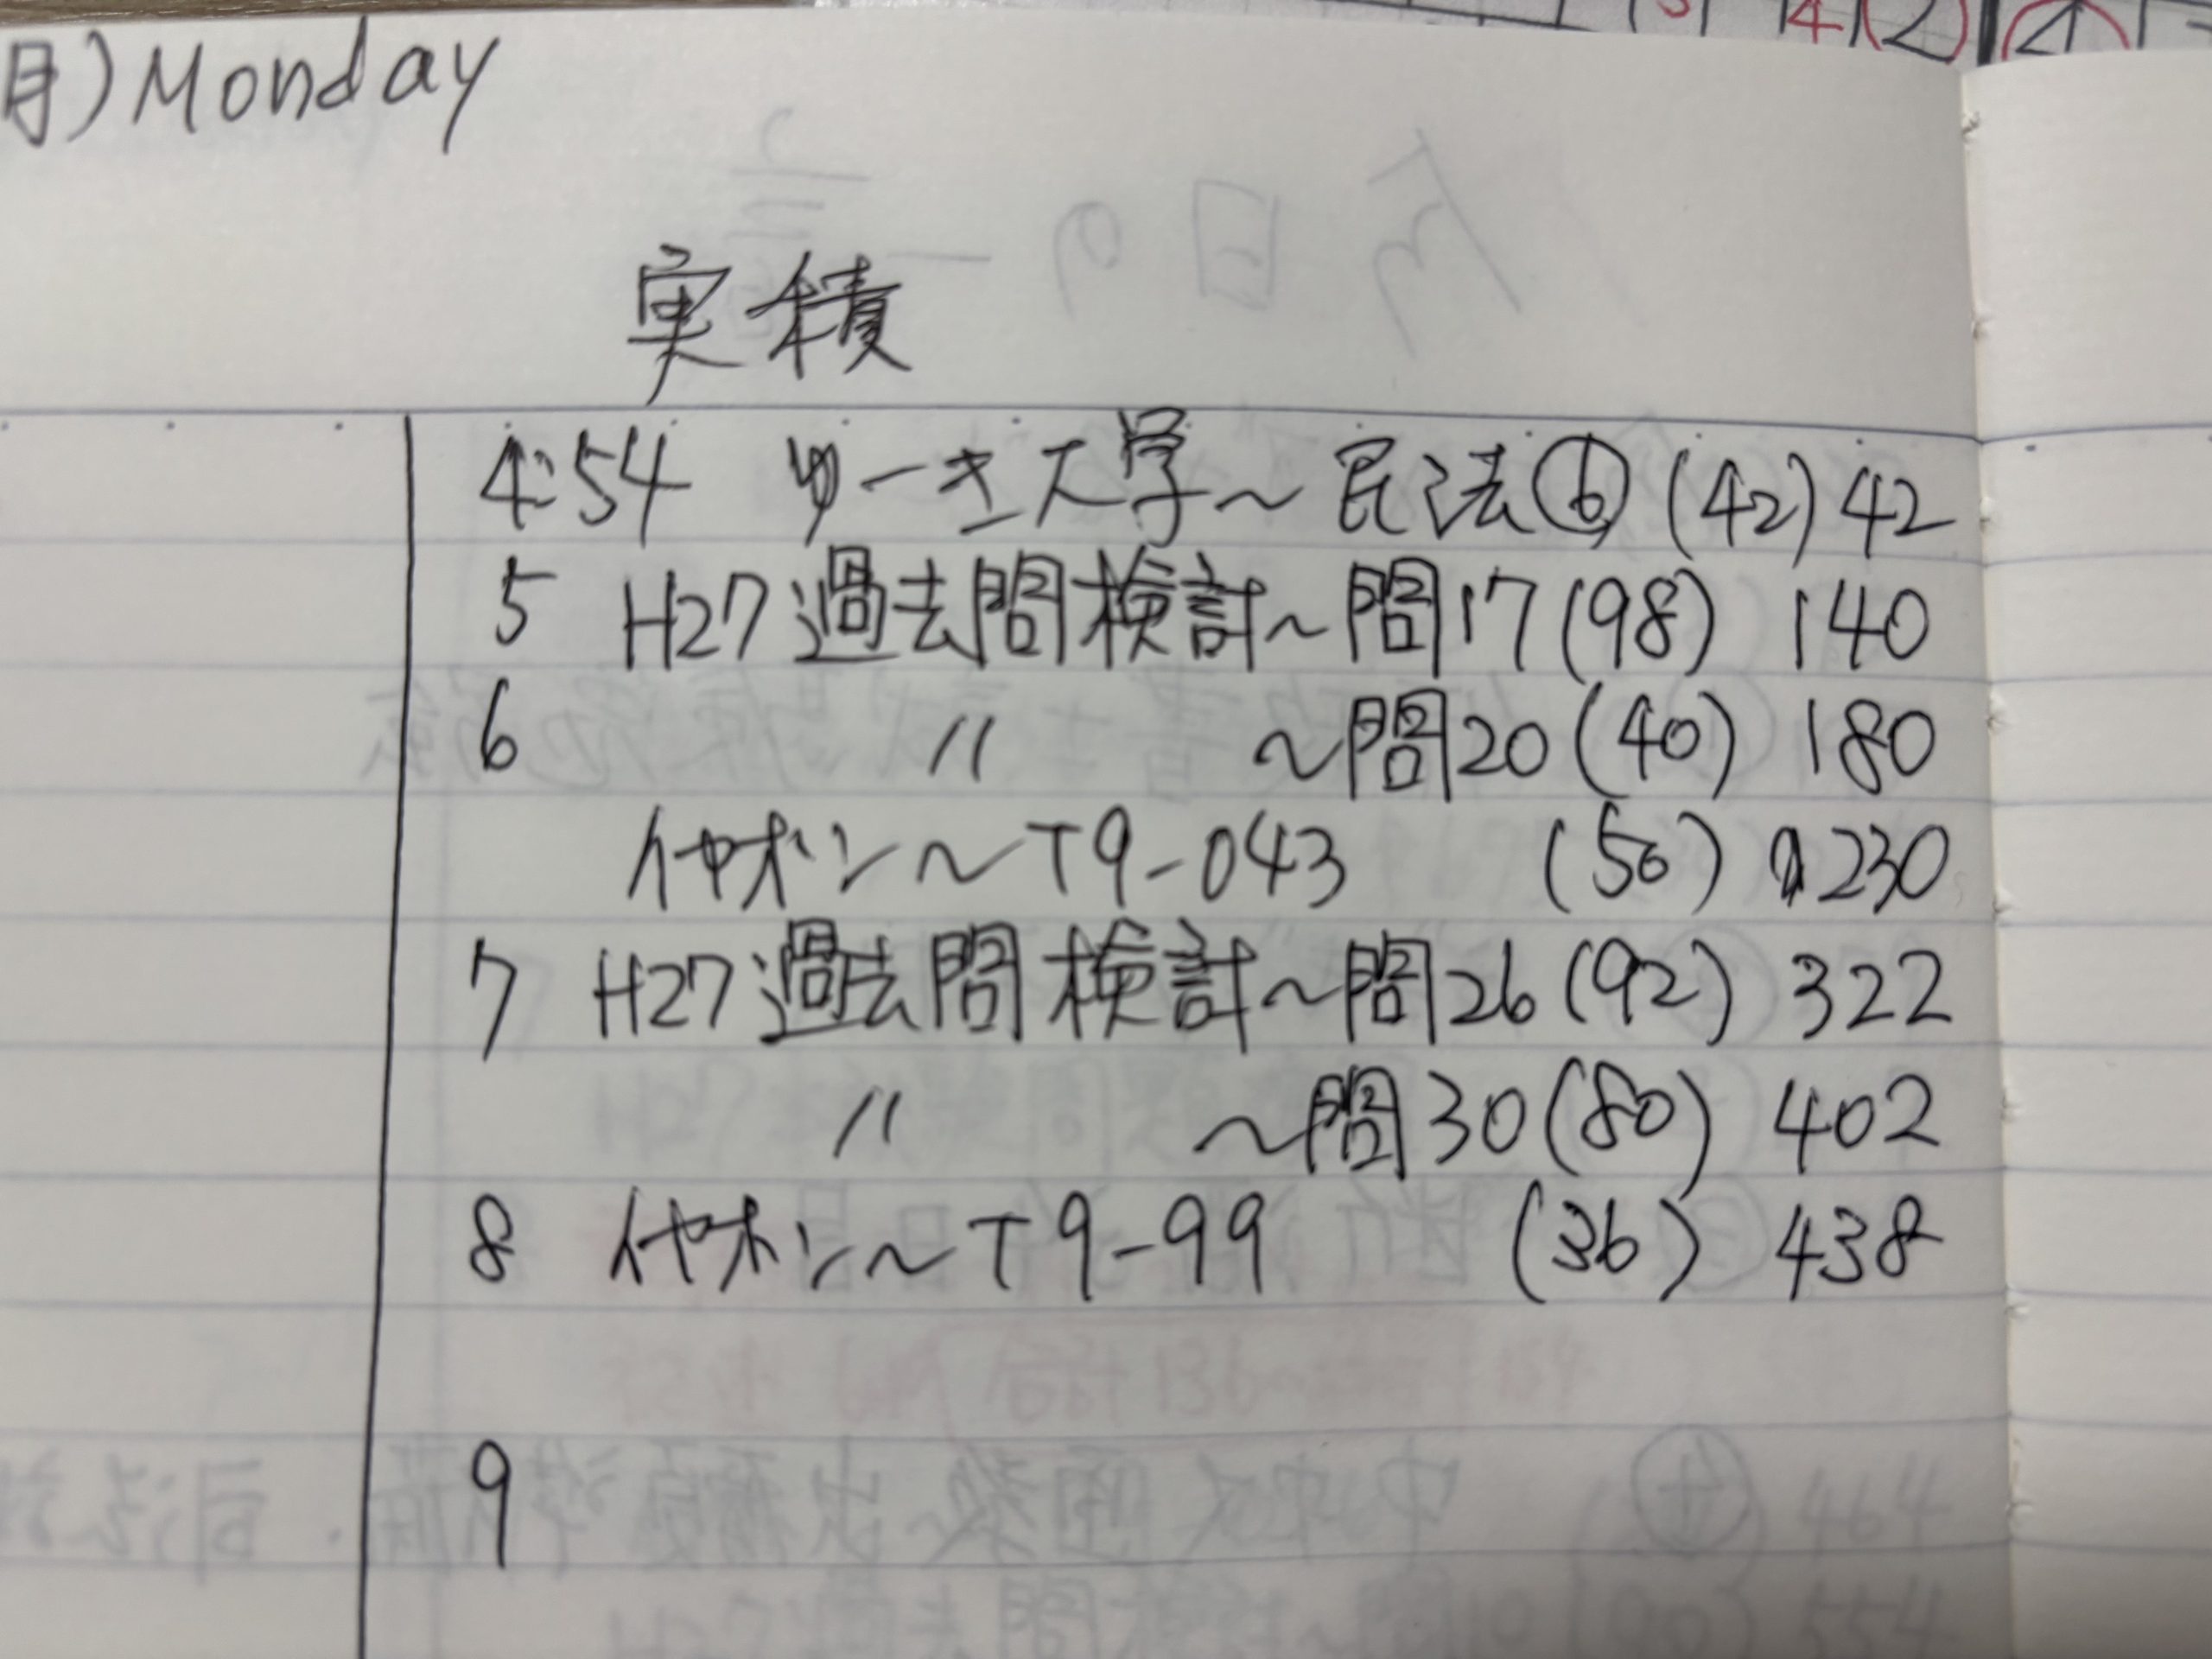 月) Monday
実積
4:54 ゆーき大学～民法⑥ (42) 42
5 H27過去問検討～問17 (98) 140
6 〃 ～問20 (40) 180
イヤホン～T9-043 (50) 230
7 H27過去問検討～問26 (92) 322
〃 ～問30 (80) 402
8 イヤホン～T9-99 (36) 438
9